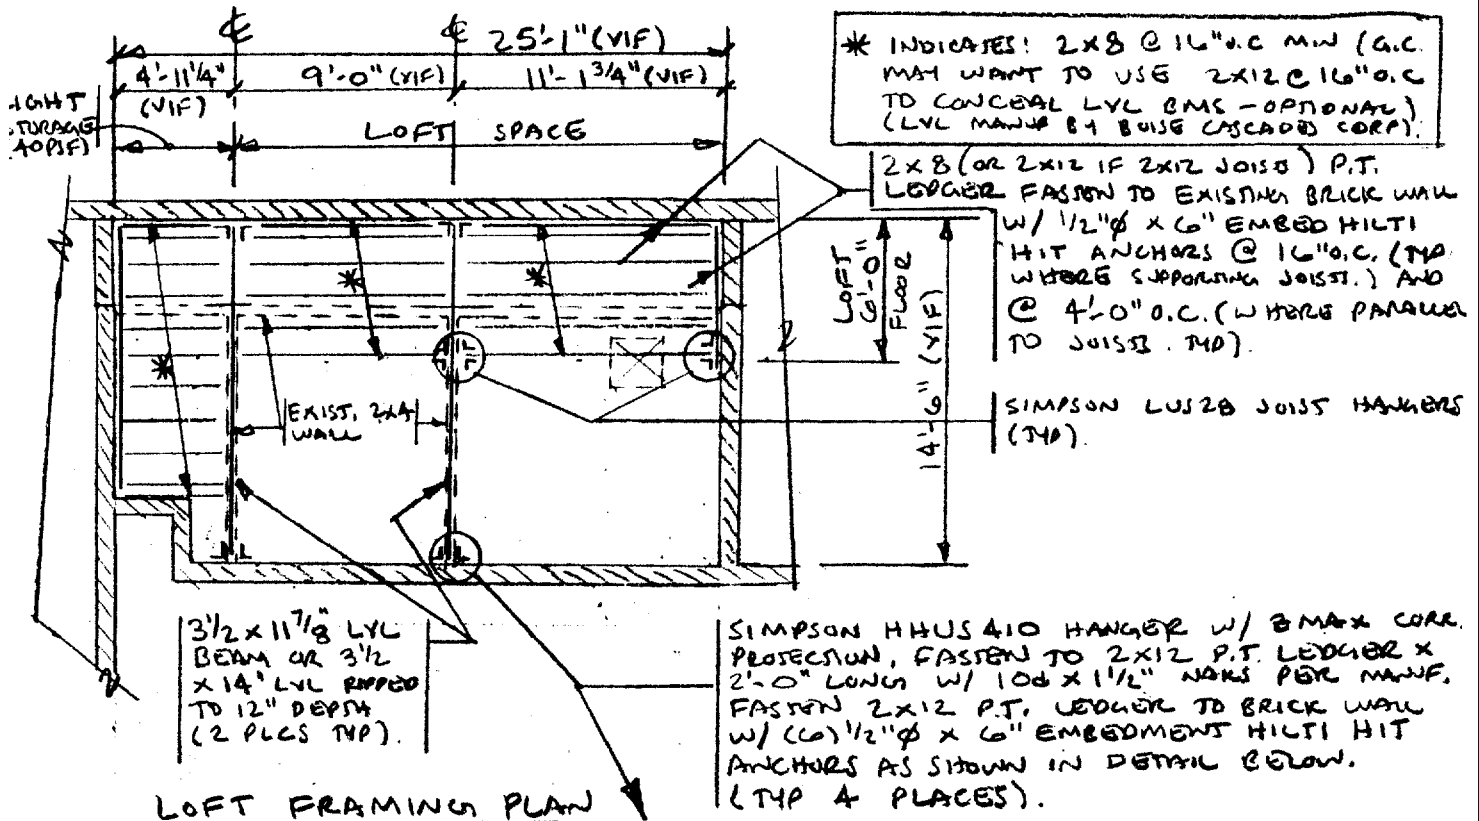 ℄ ℄
25'-1" (VIF)
4'-11 1/4" (VIF)
9'-0" (VIF)
11'-1 3/4" (VIF)
IGHT
TORAGE
40PSF)
LOFT SPACE
* INDICATES: 2X8 @ 16" O.C MIN (G.C.
MAY WANT TO USE 2X12 @ 16" O.C
TO CONCEAL LVL BMS - OPTIONAL)
(LVL MANUF BY BOISE CASCADES CORP).
2X8 (OR 2X12 IF 2X12 JOISTS) P.T.
LEDGER FASTEN TO EXISTING BRICK WALL
W/ 1/2"Ø X 6" EMBED HILTI
HIT ANCHORS @ 16" O.C. (TYP
WHERE SUPPORTING JOISTS.) AND
@ 4'-0" O.C. (WHERE PARALLEL
TO JOISTS. TYP).
LOFT
6'-0"
FLOOR
14'-6" (VIF)
*
*
*
EXIST. 2X4
WALL
SIMPSON LUS28 JOIST HANGERS
(TYP).
3 1/2 X 11 7/8" LVL
BEAM OR 3 1/2
X 14" LVL RIPPED
TO 12" DEPTH
(2 PLCS TYP).
SIMPSON HHUS410 HANGER W/ ZMAX CORR.
PROTECTION, FASTEN TO 2X12 P.T. LEDGER X
2'-0" LONG W/ 10d X 1 1/2" NAILS PER MANUF.
FASTEN 2X12 P.T. LEDGER TO BRICK WALL
W/ (6) 1/2"Ø X 6" EMBEDMENT HILTI HIT
ANCHORS AS SHOWN IN DETAIL BELOW.
(TYP 4 PLACES).
LOFT FRAMING PLAN